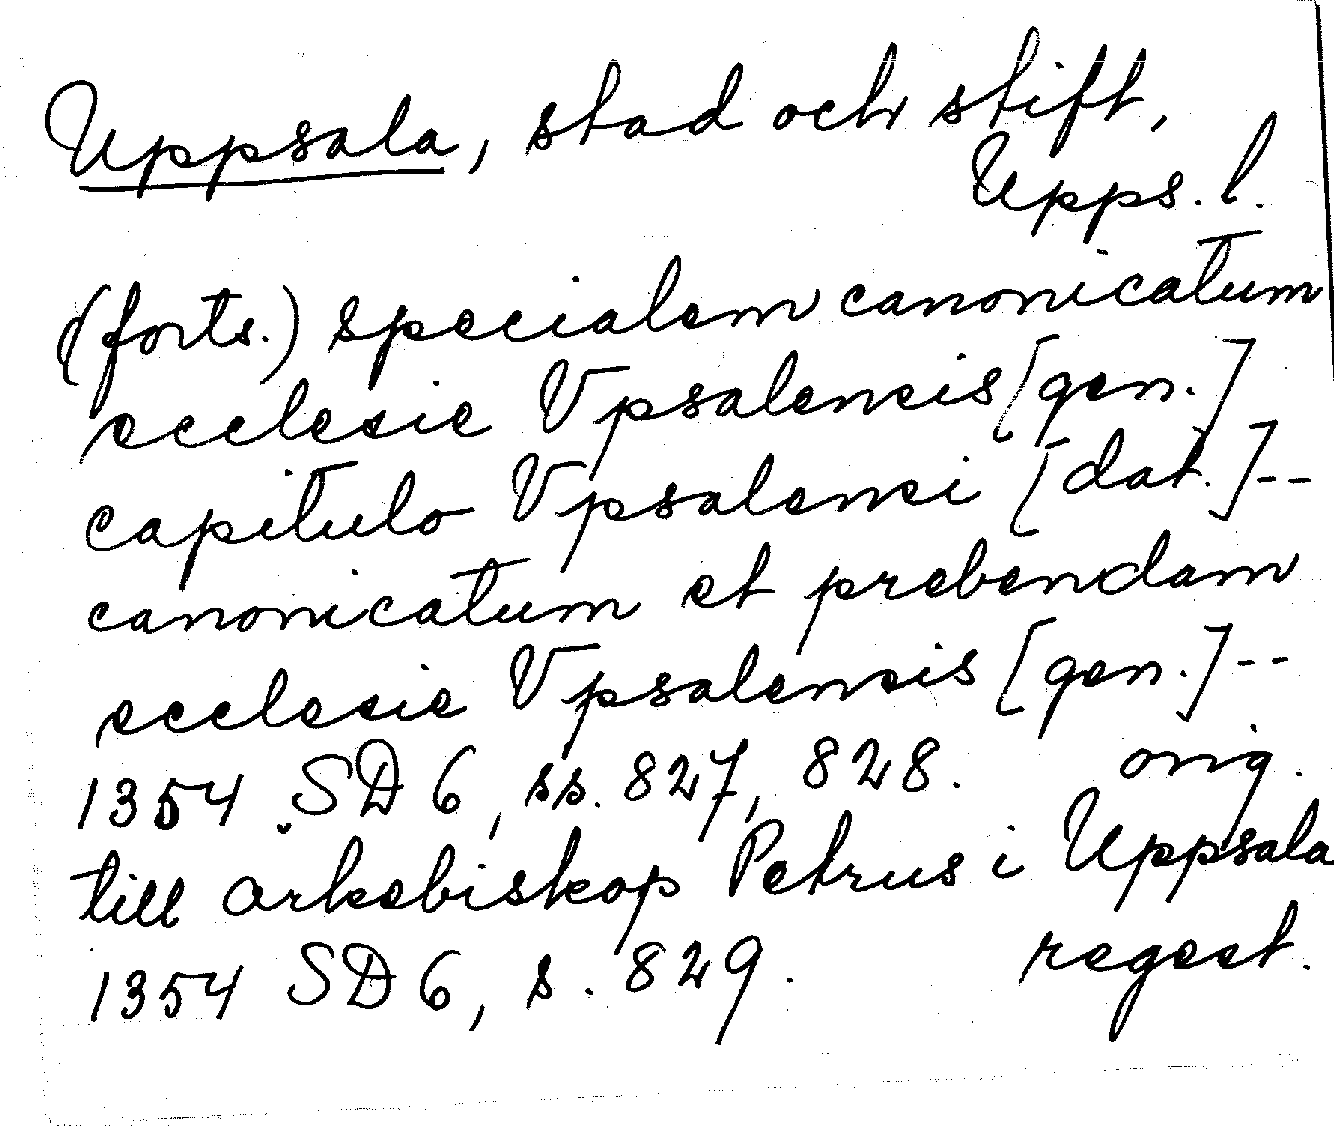 Uppsala, stad och stift,
Upps. l.
(forts.) specialem canonicatum
ecclesie Vpsalensis [gen.]
capitulo Vpsalensi [dat.]--
canonicatum et prebendam
ecclesie Vpsalensis [gen.]--
1354 SD 6, ss. 827, 828. orig.
till ärkebiskop Petrus i Uppsala
1354 SD 6, s. 829. regest.